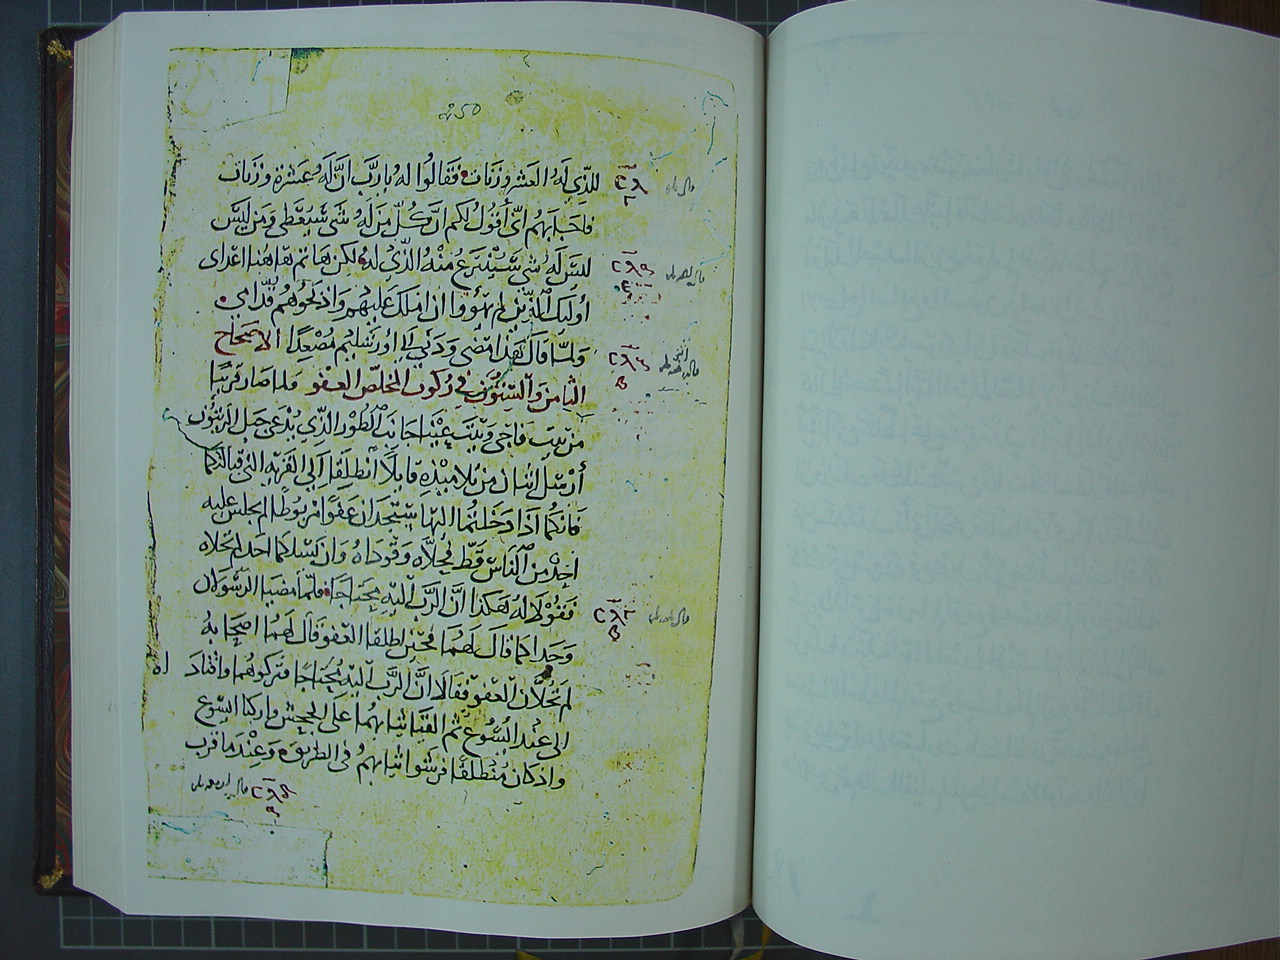 250
للذي له العشر وزنات فقالوا له يا رب ان له عشرة وزنات
فاجابهم اني أقول لكم ان كل من له شي سيعطى ومن ليس
ليس له شي سينتزع منه الذي له لكن هاتم هاهنا اعداي
أوليك الذين لم يهووا ان املك عليهم واذبحوهم قدامي
ولما قال هذا مضى ودني لما اورشليم مصعدا الاصحاح
الثامن والستون في ركوب المخلص العفو ولما صار قريبا
من بيت فاجي وبيت عنيا جانب الطور الذي يدعى جبل الزيتون
أرسل اثنان من تلاميذه قايلا انطلقا الى القريه التي قبالتكما
فانكما اذا دخلتما اليها ستجدان عفوا مربوطا لم يجلس عليه
احد من الناس قط فحلاه وقوداه وان يسلكما احد لم تحلاه
فقولا له هكذا ان الرب اليه محتاجا فلما مضيا الرسولان
وجدا كما قال لهما فحين اطلقا العفو قال لهما اصحابه
لم تحلان العفو فقالا ان الرب اليه محتاجا فتركوهما واقتادَ اه
الى عند السوع ثم القيا ثيابهما على الجحش واركبا اليسوع
واذ كان منطلقا فرشوا ثيابهم في الطريق وعندما قرب